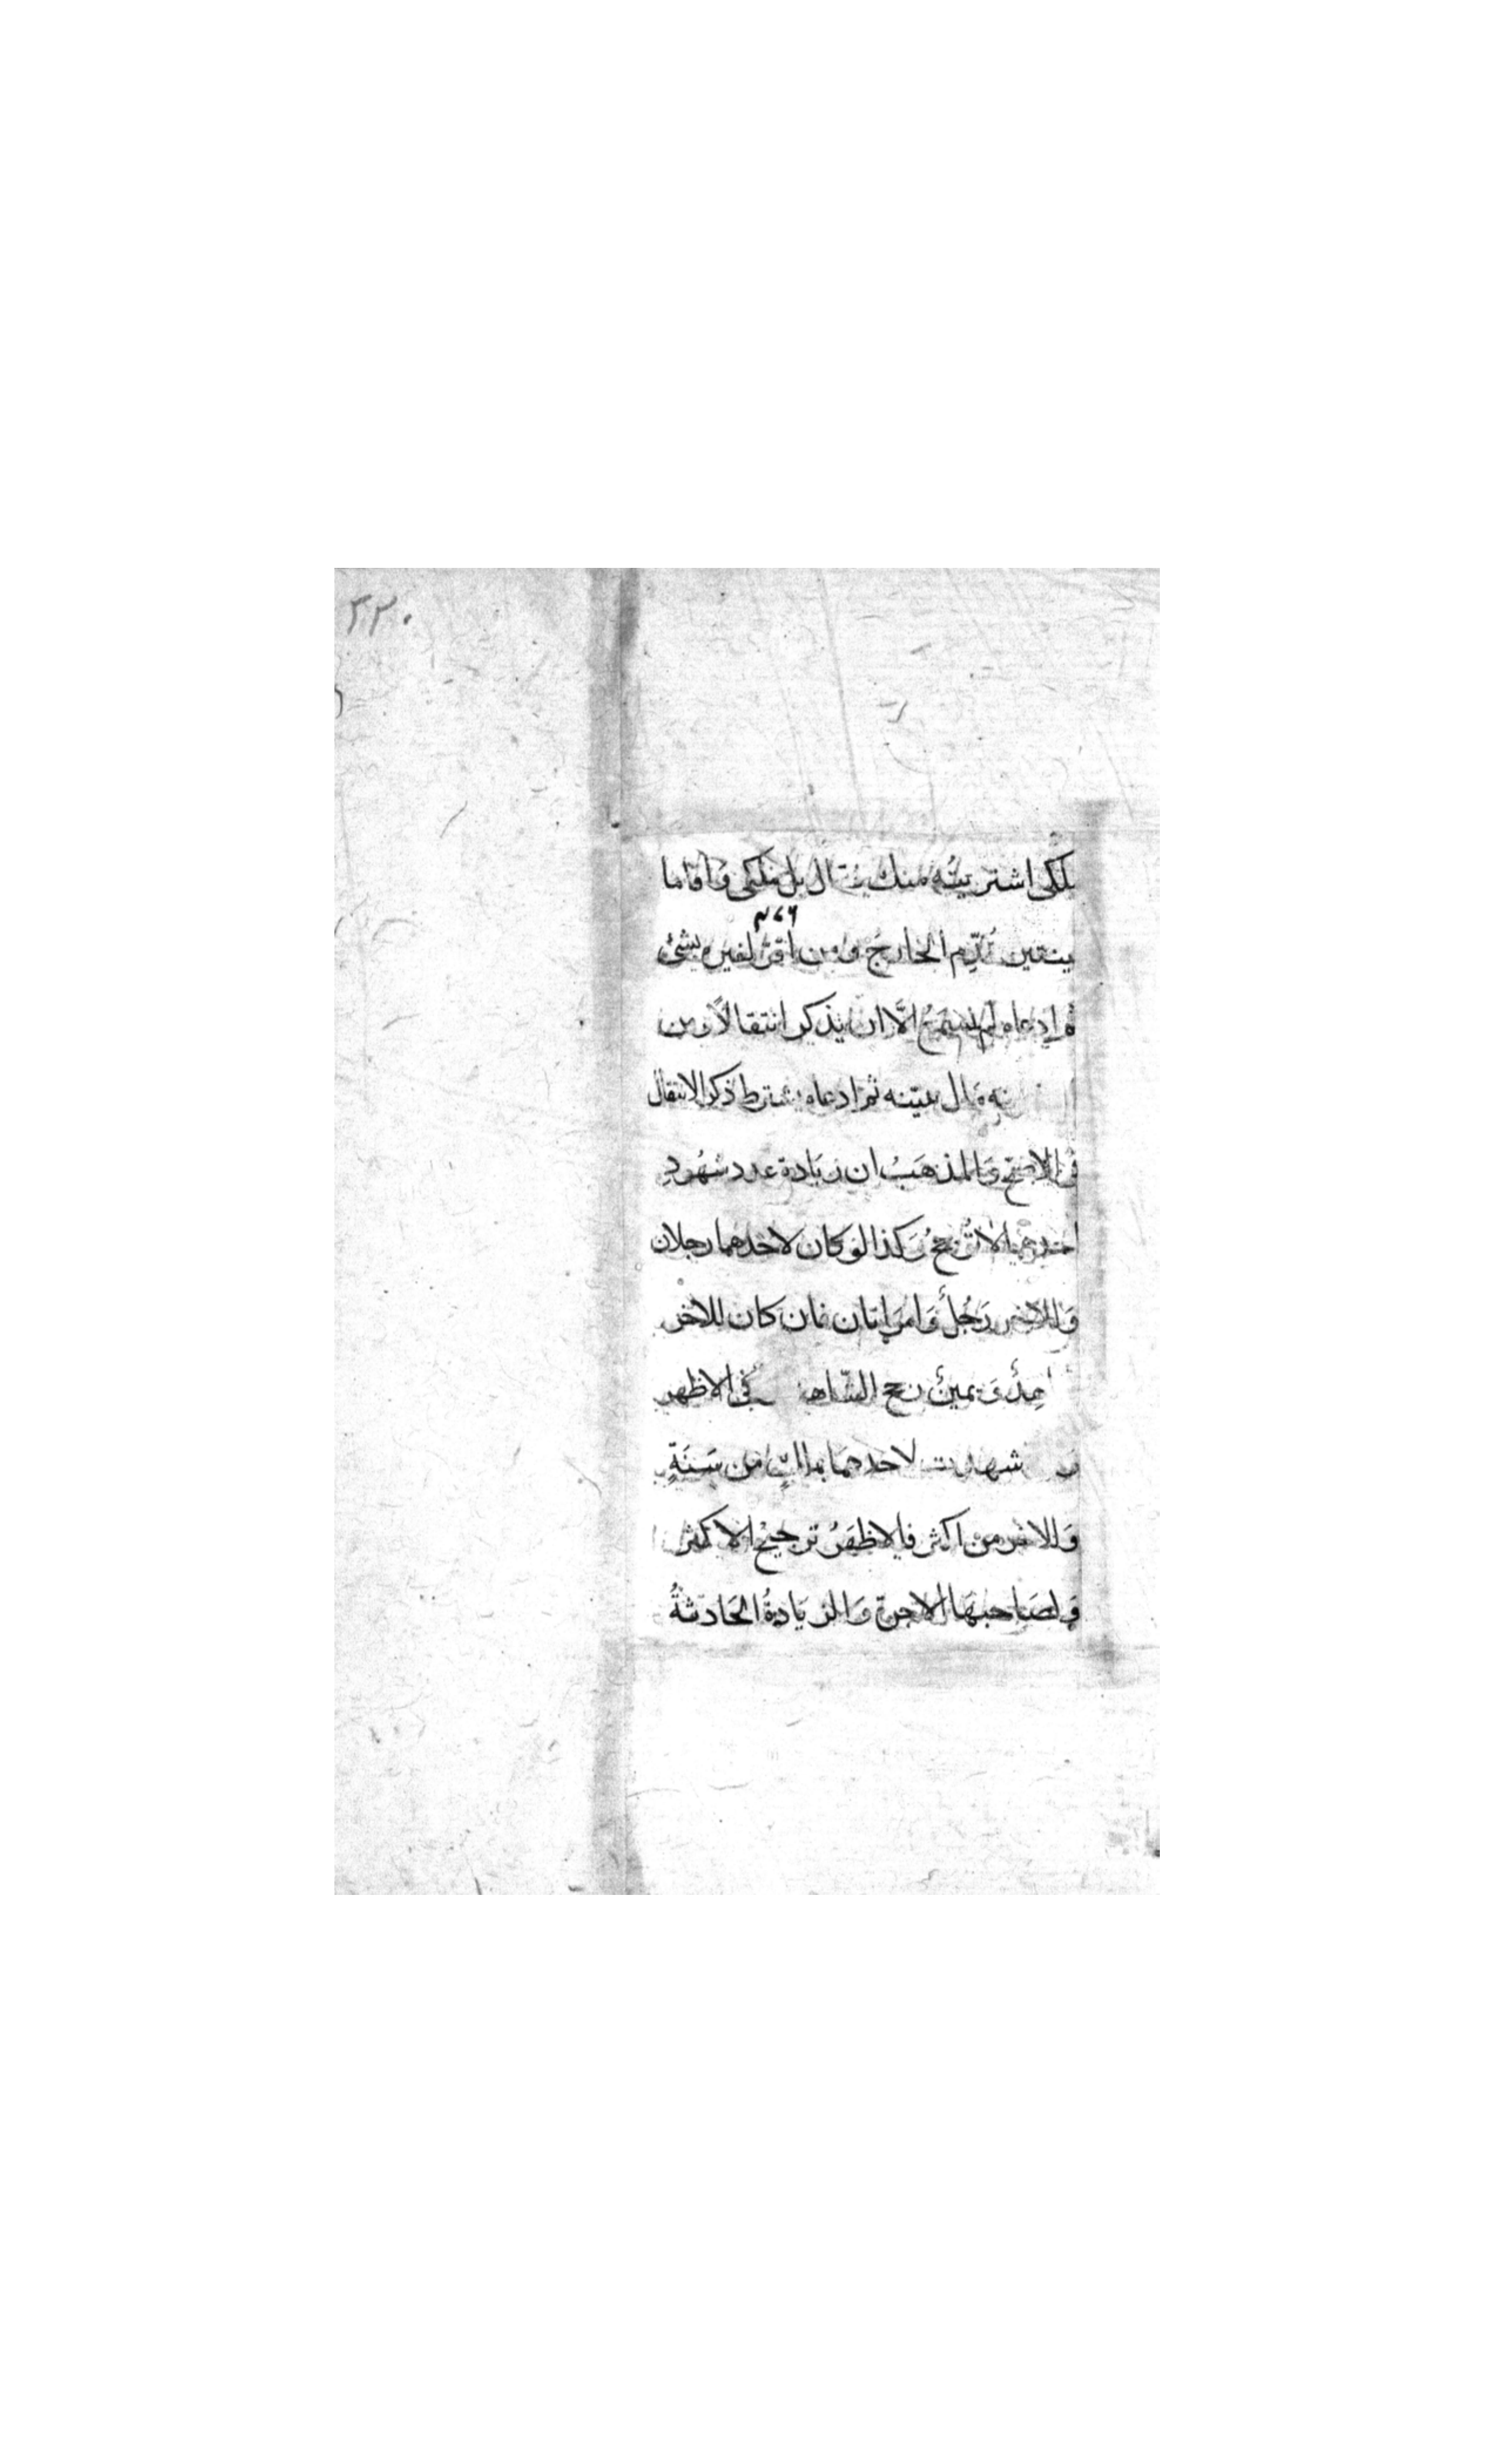 ٣٢٠
ملكي اشتريتُه منك فقال بل ملكي وَاقاما
٤٧٦
بينتين قُدِّم الخارجَ ومن اقرّ لغيره بشئ
ثم ادعاه لم تسمَعُ الَّا ان يذكر انتقالًا ومن
ثم ادعاه يشترط ذكر الانتقال
في الاصحّ وَالمذهَبُ ان زيَادة عدد شهُودِ
احدهما لا تُرجحُ وَكذا لو كان لاحدهما رجلان
وَللاخر رَجُلٌ وَامرَاتان فان كان للاخر
وَيمينٌ رجح في الاظهر
شهدت لاحدهمَا بملكٍ من سَنَةٍ
وَللاخر من اكثر فالاظهَرُ ترجيحُ الاكثر
وَلصَاحبهَا الاجرة وَالزيَادةُ الحَادثةُ